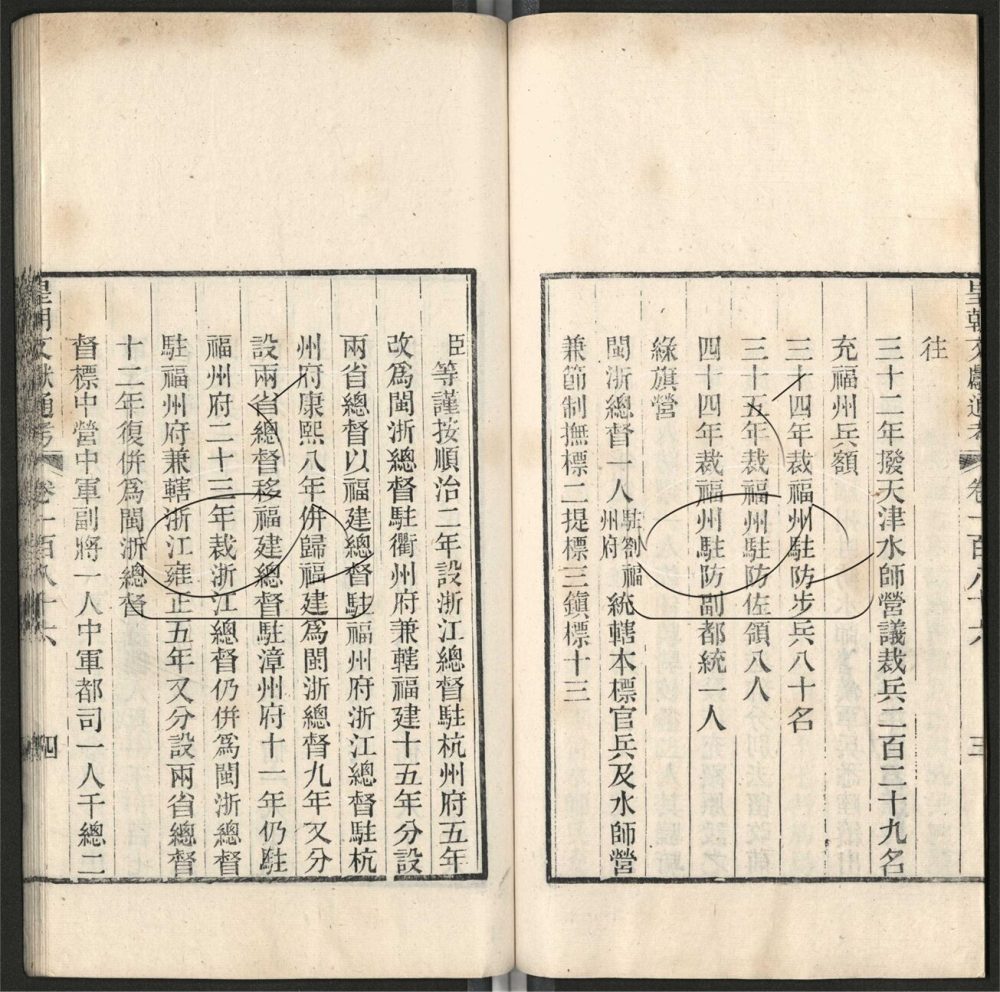 皇朝文獻通考 卷一百八十六 三
往
三十二年撥天津水師營議裁兵二百三十九名
充福州兵額
三十四年裁福州駐防步兵八十名
三十五年裁福州駐防佐領八人
四十四年裁福州駐防副都統一人
綠旗營
閩浙總督一人駐劄福州府統轄本標官兵及水師營
兼節制撫標二提標三鎮標十三
臣等謹按順治二年設浙江總督駐杭州府五年
改為閩浙總督駐衢州府兼轄福建十五年分設
兩省總督以福建總督駐福州府浙江總督駐杭
州府康熙八年併歸福建為閩浙總督九年又分
設兩省總督移福建總督駐漳州府十一年仍駐
福州府二十三年裁浙江總督仍併為閩浙總督
駐福州府兼轄浙江雍正五年又分設兩省總督
十二年復併為閩浙總督
督標中營中軍副將一人中軍都司一人千總二
皇朝文獻通考 卷一百八十六 四